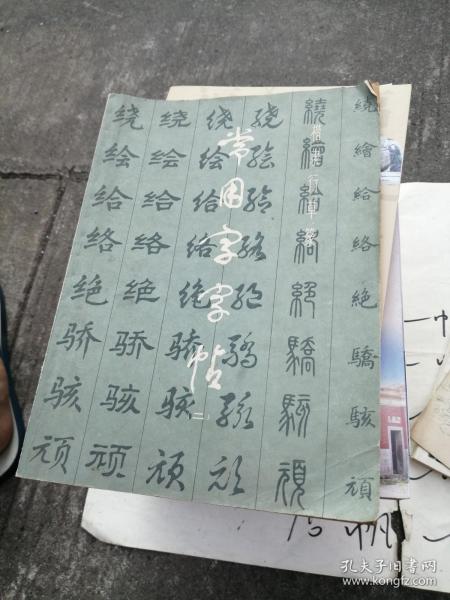 常用字字帖
(二)
楷隶行草篆
绕 绕 绕 绕 繞 繞
绘 绘 绘 绘 繪 繪
给 给 给 给 給 給
络 络 络 络 絡 絡
绝 绝 绝 绝 絕 絕
骄 骄 骄 骄 驕 驕
骇 骇 骇 骇 駭 駭
顽 顽 顽 顽 頑 頑
孔夫子旧书网
www.kongfz.com